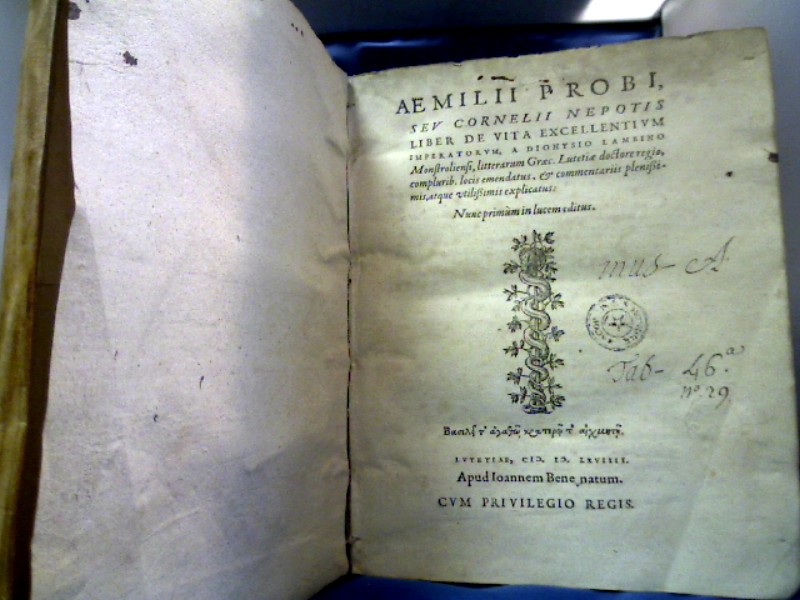 AEMILII PROBI,
SEV CORNELII NEPOTIS
LIBER DE VITA EXCELLENTIVM
IMPERATORVM, A DIONYSIO LAMBINO
Monstroliensi, litterarum Græc. Lutetiæ doctore regio,
complurib. locis emendatus, & commentariis plenissi-
mis, atque vtilissimis explicatus:
Nunc primùm in lucem editus.
mus- A
Tab- 46.a
no. 29
LVTETIAE, CIƆ. IƆ. LXVIIII.
Apud Ioannem Bene natum.
CVM PRIVILEGIO REGIS.